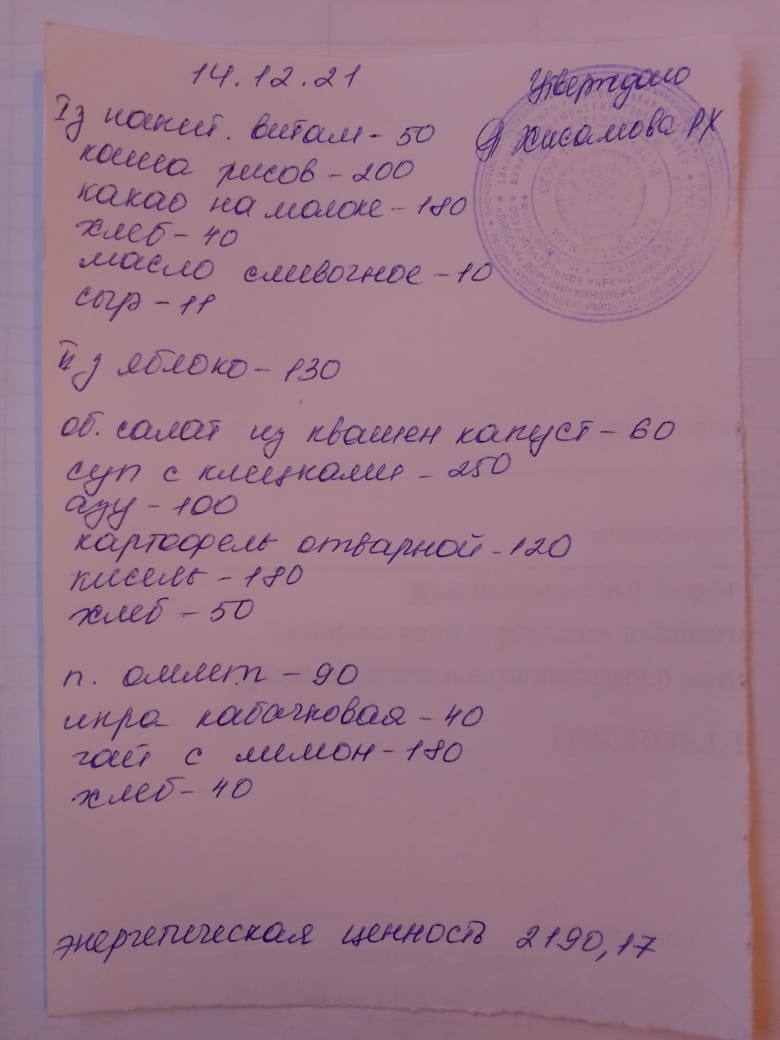 14.12.21
Утверждаю
Хисамова РХ
I з напит. витам - 50
каша рисов - 200
какао на молоке - 180
хлеб - 40
масло сливочное - 10
сыр - 11
II з яблоко - 130
об. салат из квашен капуст - 60
суп с клецками - 250
азу - 100
картофель отварной - 120
кисель - 180
хлеб - 50
п. омлет - 90
икра кабачковая - 40
чай с лимон - 180
хлеб - 40
энергетическая ценность 2190,17